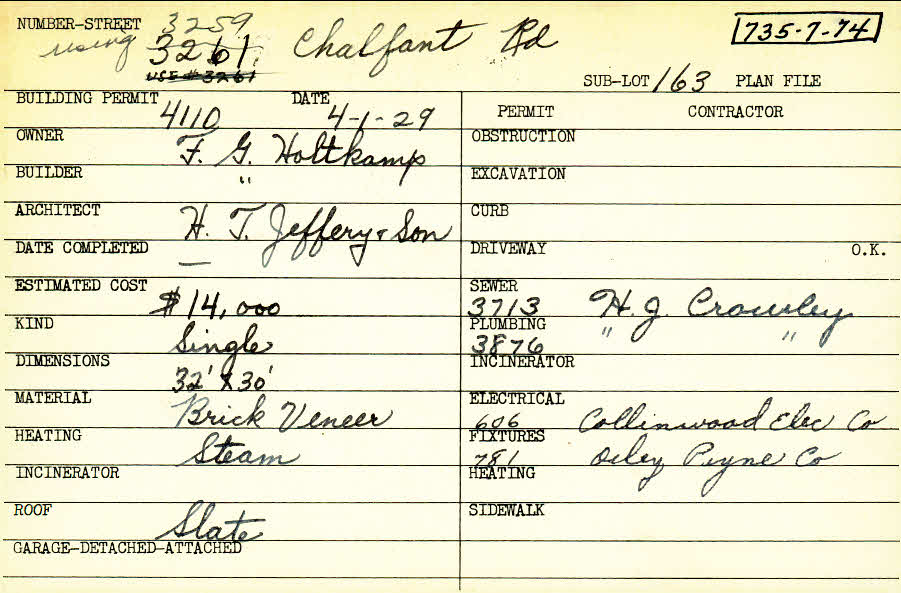 NUMBER-STREET 3259
using 3261 Chalfant Rd
USE # 3261
735-7-74
SUB-LOT 163 PLAN FILE
BUILDING PERMIT 4110 DATE 4-1-29
PERMIT CONTRACTOR
OWNER F. G. Holtkamp
OBSTRUCTION
BUILDER "
EXCAVATION
ARCHITECT H. T. Jeffery & Son
CURB
DATE COMPLETED —
DRIVEWAY O.K.
ESTIMATED COST $14,000
SEWER 3713 H. J. Crowley
KIND Single
PLUMBING 3876 " "
DIMENSIONS 32' X 30'
INCINERATOR
MATERIAL Brick Veneer
ELECTRICAL 606 Collinwood Elec Co
HEATING Steam
FIXTURES 781 Payne Co
INCINERATOR
HEATING
ROOF Slate
SIDEWALK
GARAGE-DETACHED-ATTACHED